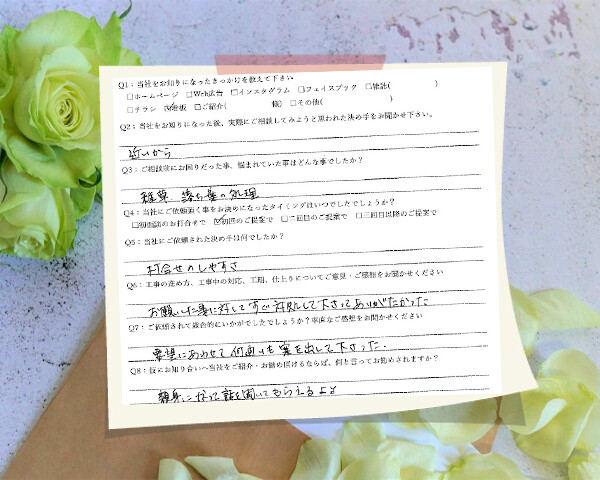 Q1：当社をお知りになったきっかけを教えて下さい
□ホームページ □Web広告 □インスタグラム □フェイスブック □雑誌( )
□チラシ ☑看板 □ご紹介( 様) □その他( )
Q2：当社をお知りになった後、実際にご相談してみようと思われた決め手をお聞かせ下さい。
近いから
Q3：ご相談前にお困りだった事、悩まれていた事はどんな事でしたか？
雑草、落ち葉の処理
Q4：当社にご依頼頂く事をお決めになったタイミングはいつでしたでしょうか？
□初面談のお打合せで ☑初回のご提案で □二回目のご提案で □三回目以降のご提案で
Q5：当社にご依頼された決め手は何でしたか？
打合せのしやすさ
Q6：工事の進め方、工事中の対応、工期、仕上りについてご意見・ご感想をお聞かせください
お願いした事に対してすぐ対処して下さってありがたかった
Q7：ご依頼されて総合的にいかがでしたでしょうか？率直なご感想をお聞かせください
要望にあわせて何回も案を出して下さった。
Q8：仮にお知り合いへ当社をご紹介・お勧め頂けるならば、何と言ってお勧めされますか？
親身になって話を聞いてもらえるよ